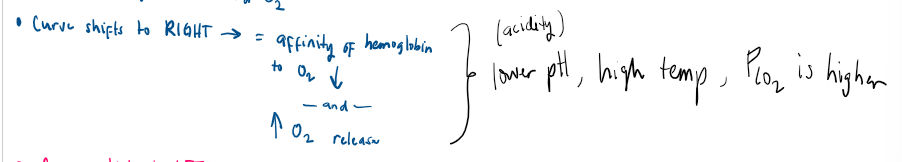 O₂
• Curve shifts to RIGHT → = affinity of hemoglobin
to O₂ ↓
— and —
↑ O₂ release
(acidity)
lower pH, high temp, PCO₂ is higher